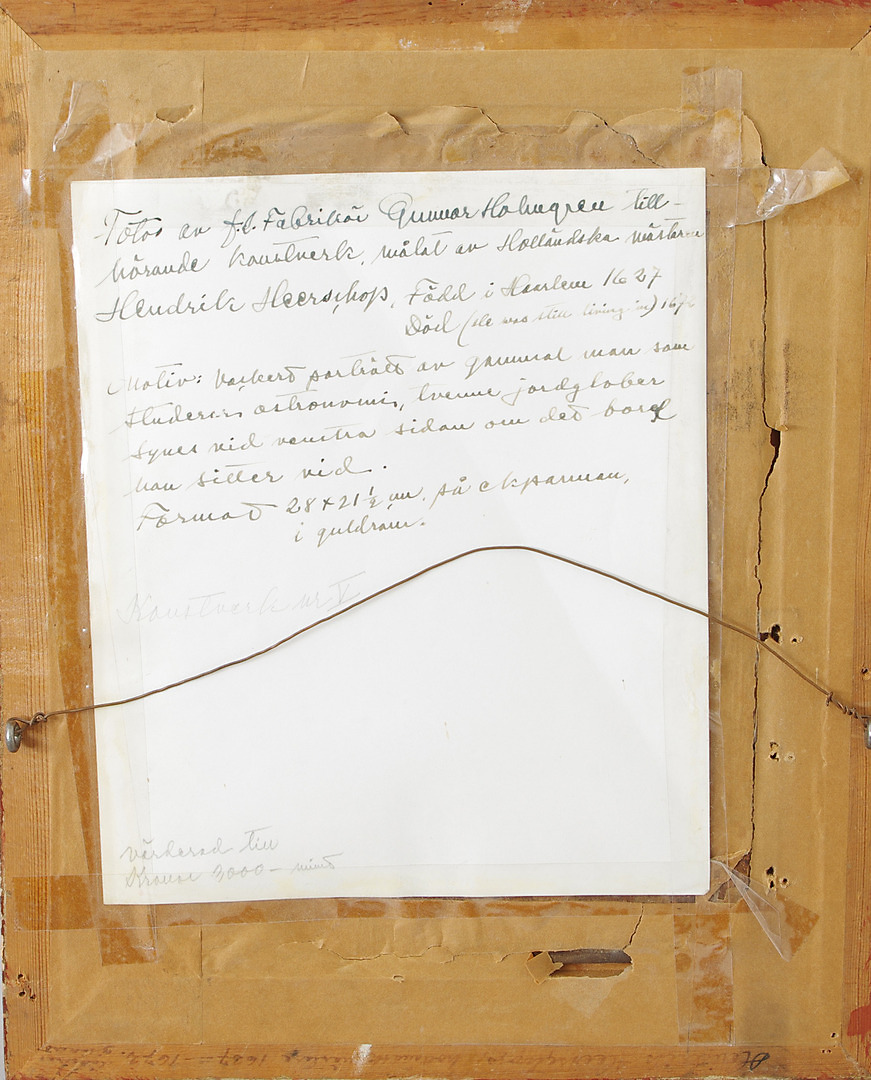 Foto av f.d. Fabrikör Gunnar Holmgren till-
hörande konstverk, målat av Holländska mästaren
Hendrik Heerschop, Född i Haarlem 1627
Död (He was still living in) 167
Motiv: Vackert porträtt av gammal man som
studerar astronomi, tvenne jordglober
synes vid venstra sidan om det bord
han sitter vid.
Format 28 x 21 ½ cm. på ekpannan,
i guldram.
Konstverk nr V
värderad till
Kronor 3000 - minst
1672